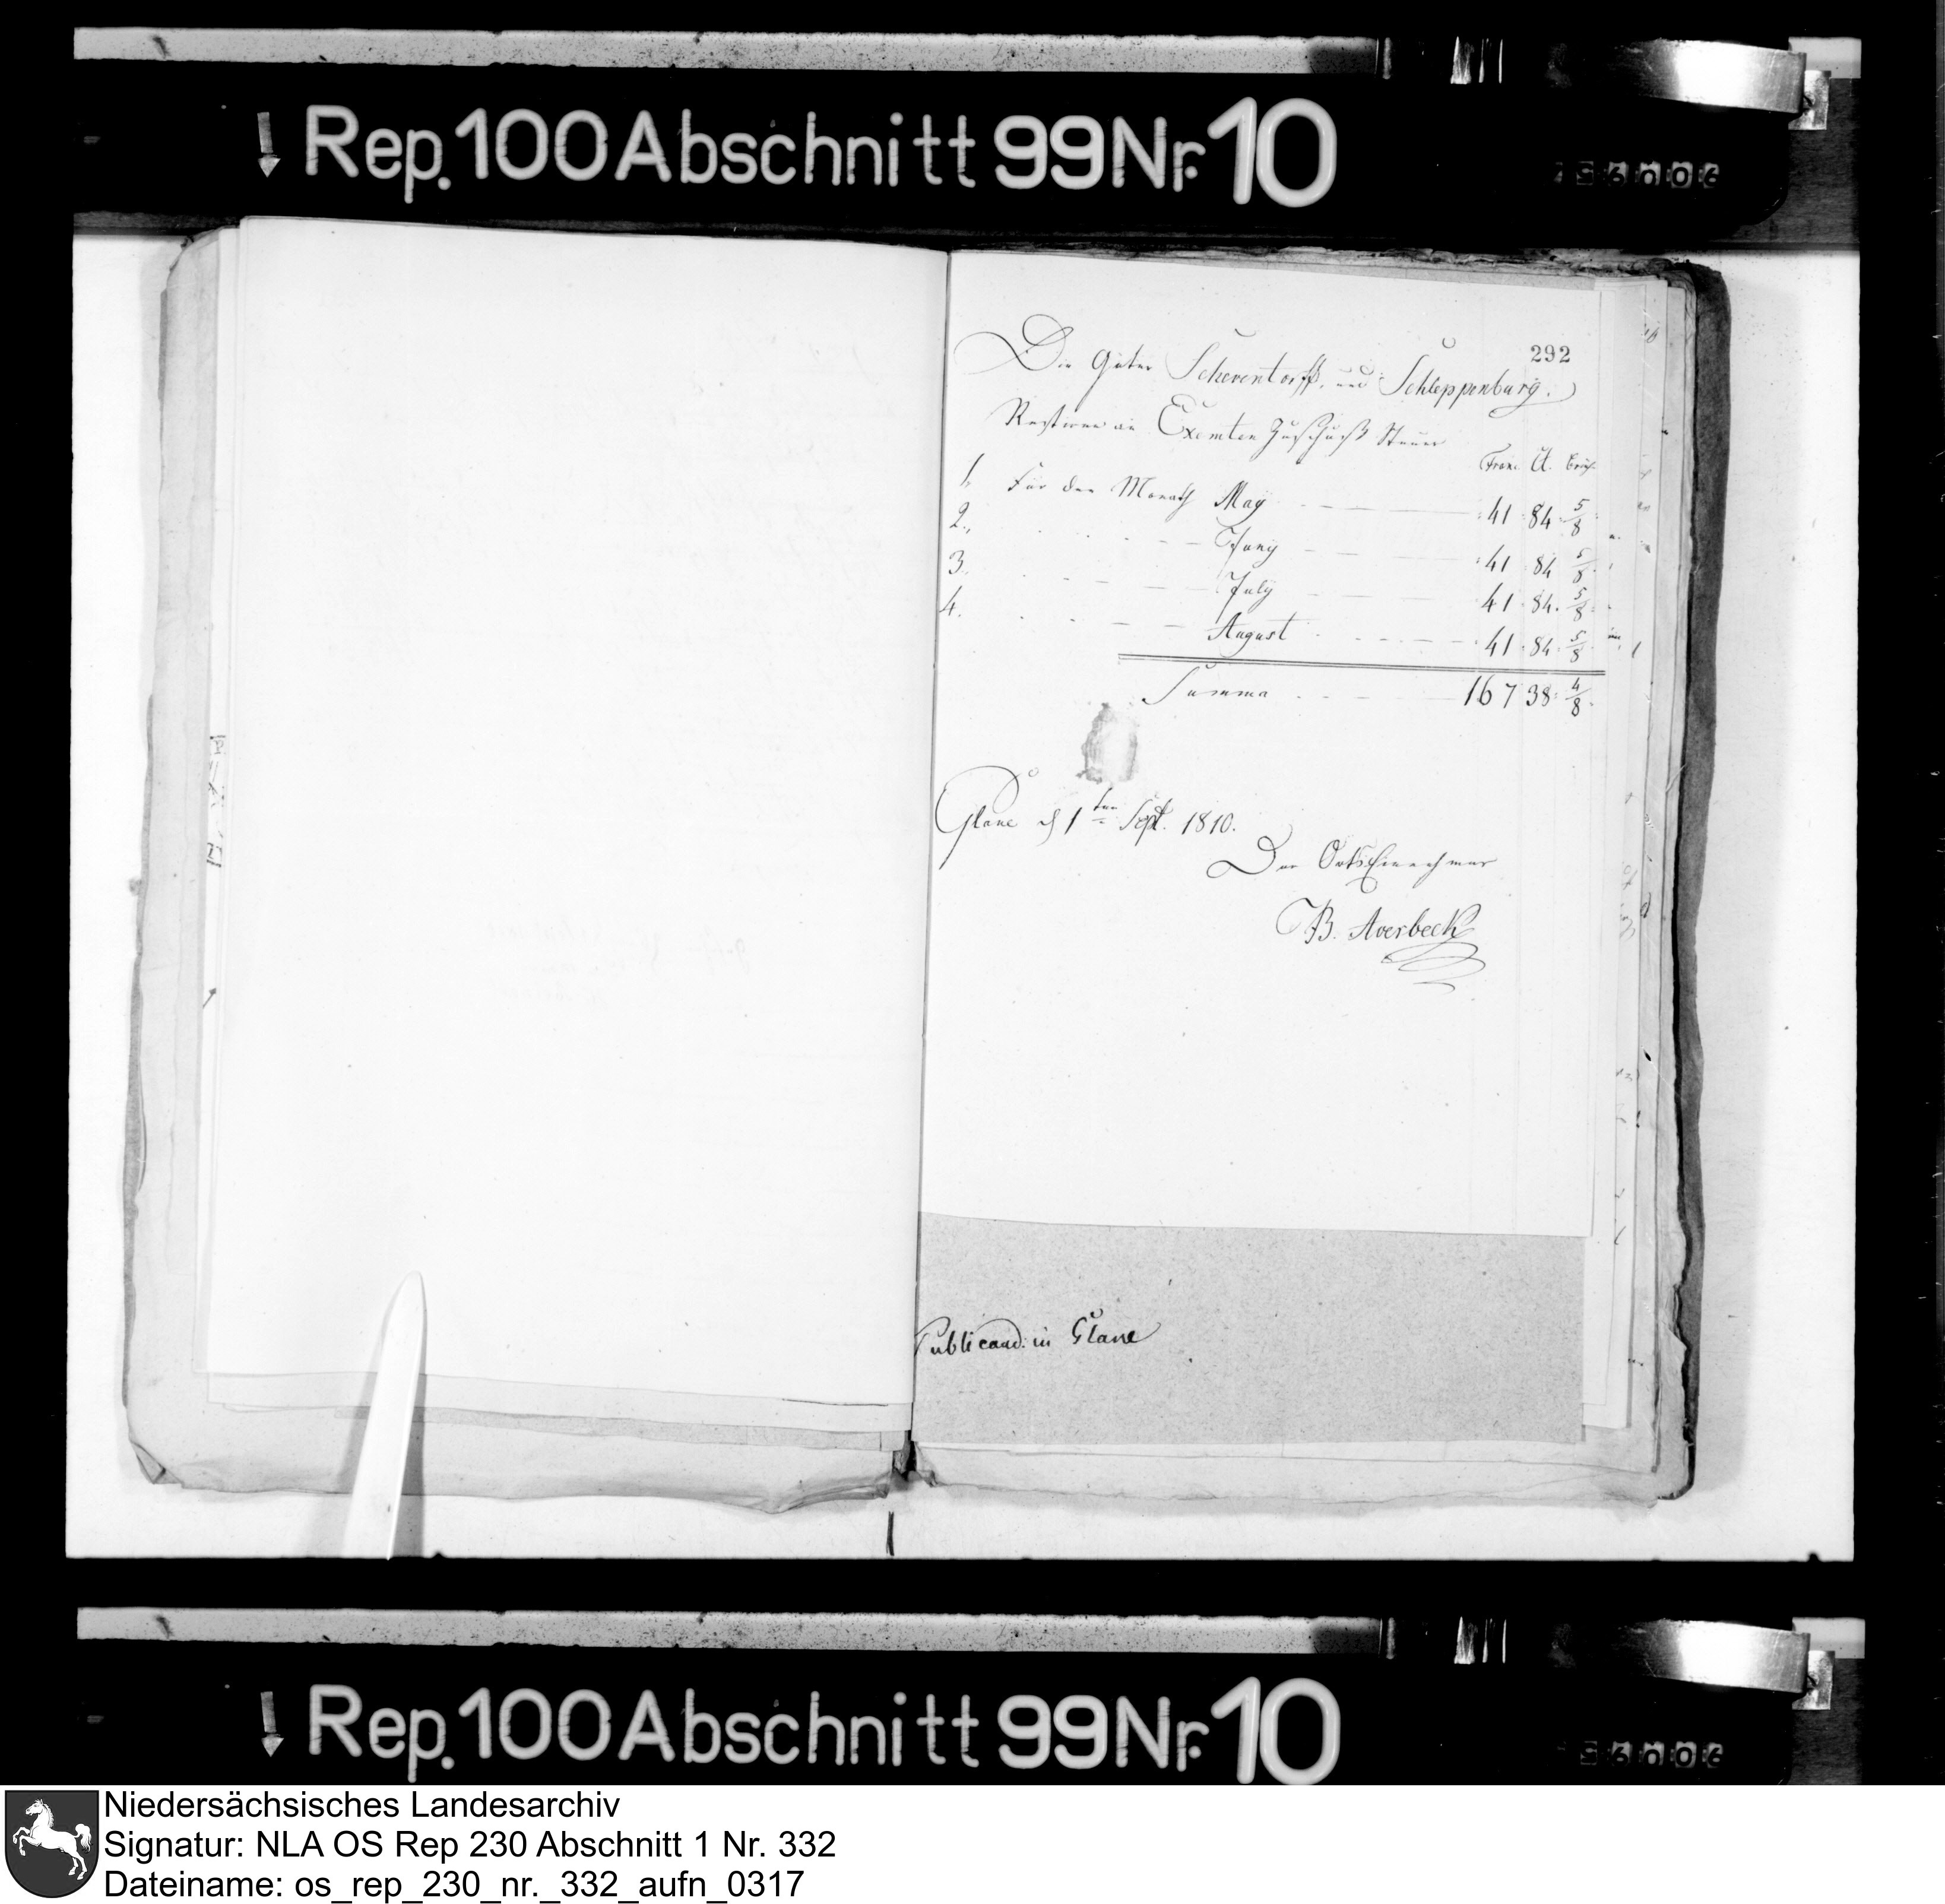 Rep. 100 Abschnitt 99 Nr. 10
292
Die Güter Scheventorff, und Schleppenburg.
Restiren an Exemten Zuschuß Steuer
Franc. Ct.
1. Für den Monath May 41 84 5/8
2. Juny 41 84 5/8
3. July 41 84 5/8
4. August 41 84 5/8
Summa 167 38 4/8
Glane d 1ten Sept. 1810.
Der OrtsEinnehmer
B. Averbeck
Publicand: in Glane
Rep. 100 Abschnitt 99 Nr. 10
Niedersächsisches Landesarchiv
Signatur: NLA OS Rep 230 Abschnitt 1 Nr. 332
Dateiname: os_rep_230_nr._332_aufn_0317